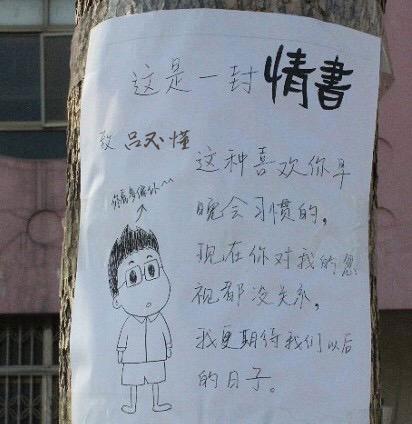 这是一封情書
致 吕不懂
你看多像你^^
这种喜欢你早
晚会习惯的,
现在你对我的忽
视都没关系,
我更期待我们以后
的日子。